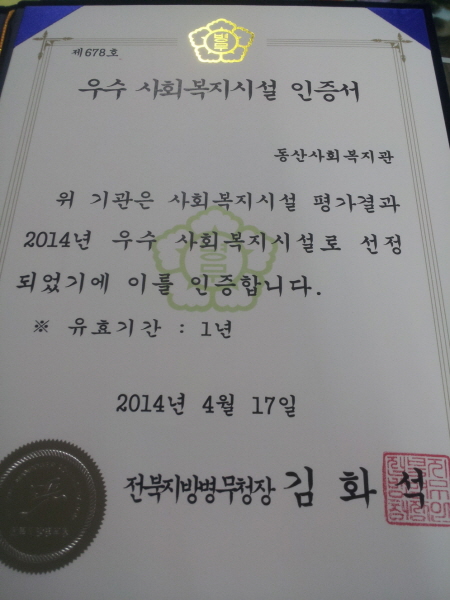 제678호
우수 사회복지시설 인증서
동산사회복지관
위 기관은 사회복지시설 평가결과
2014년 우수 사회복지시설로 선정
되었기에 이를 인증합니다.
※ 유효기간 : 1년
2014년 4월 17일
전북지방병무청장 김 화 석